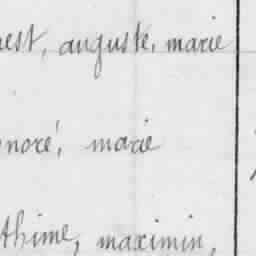 nest, auguste, marie
onoré, marie
thime, maximin,